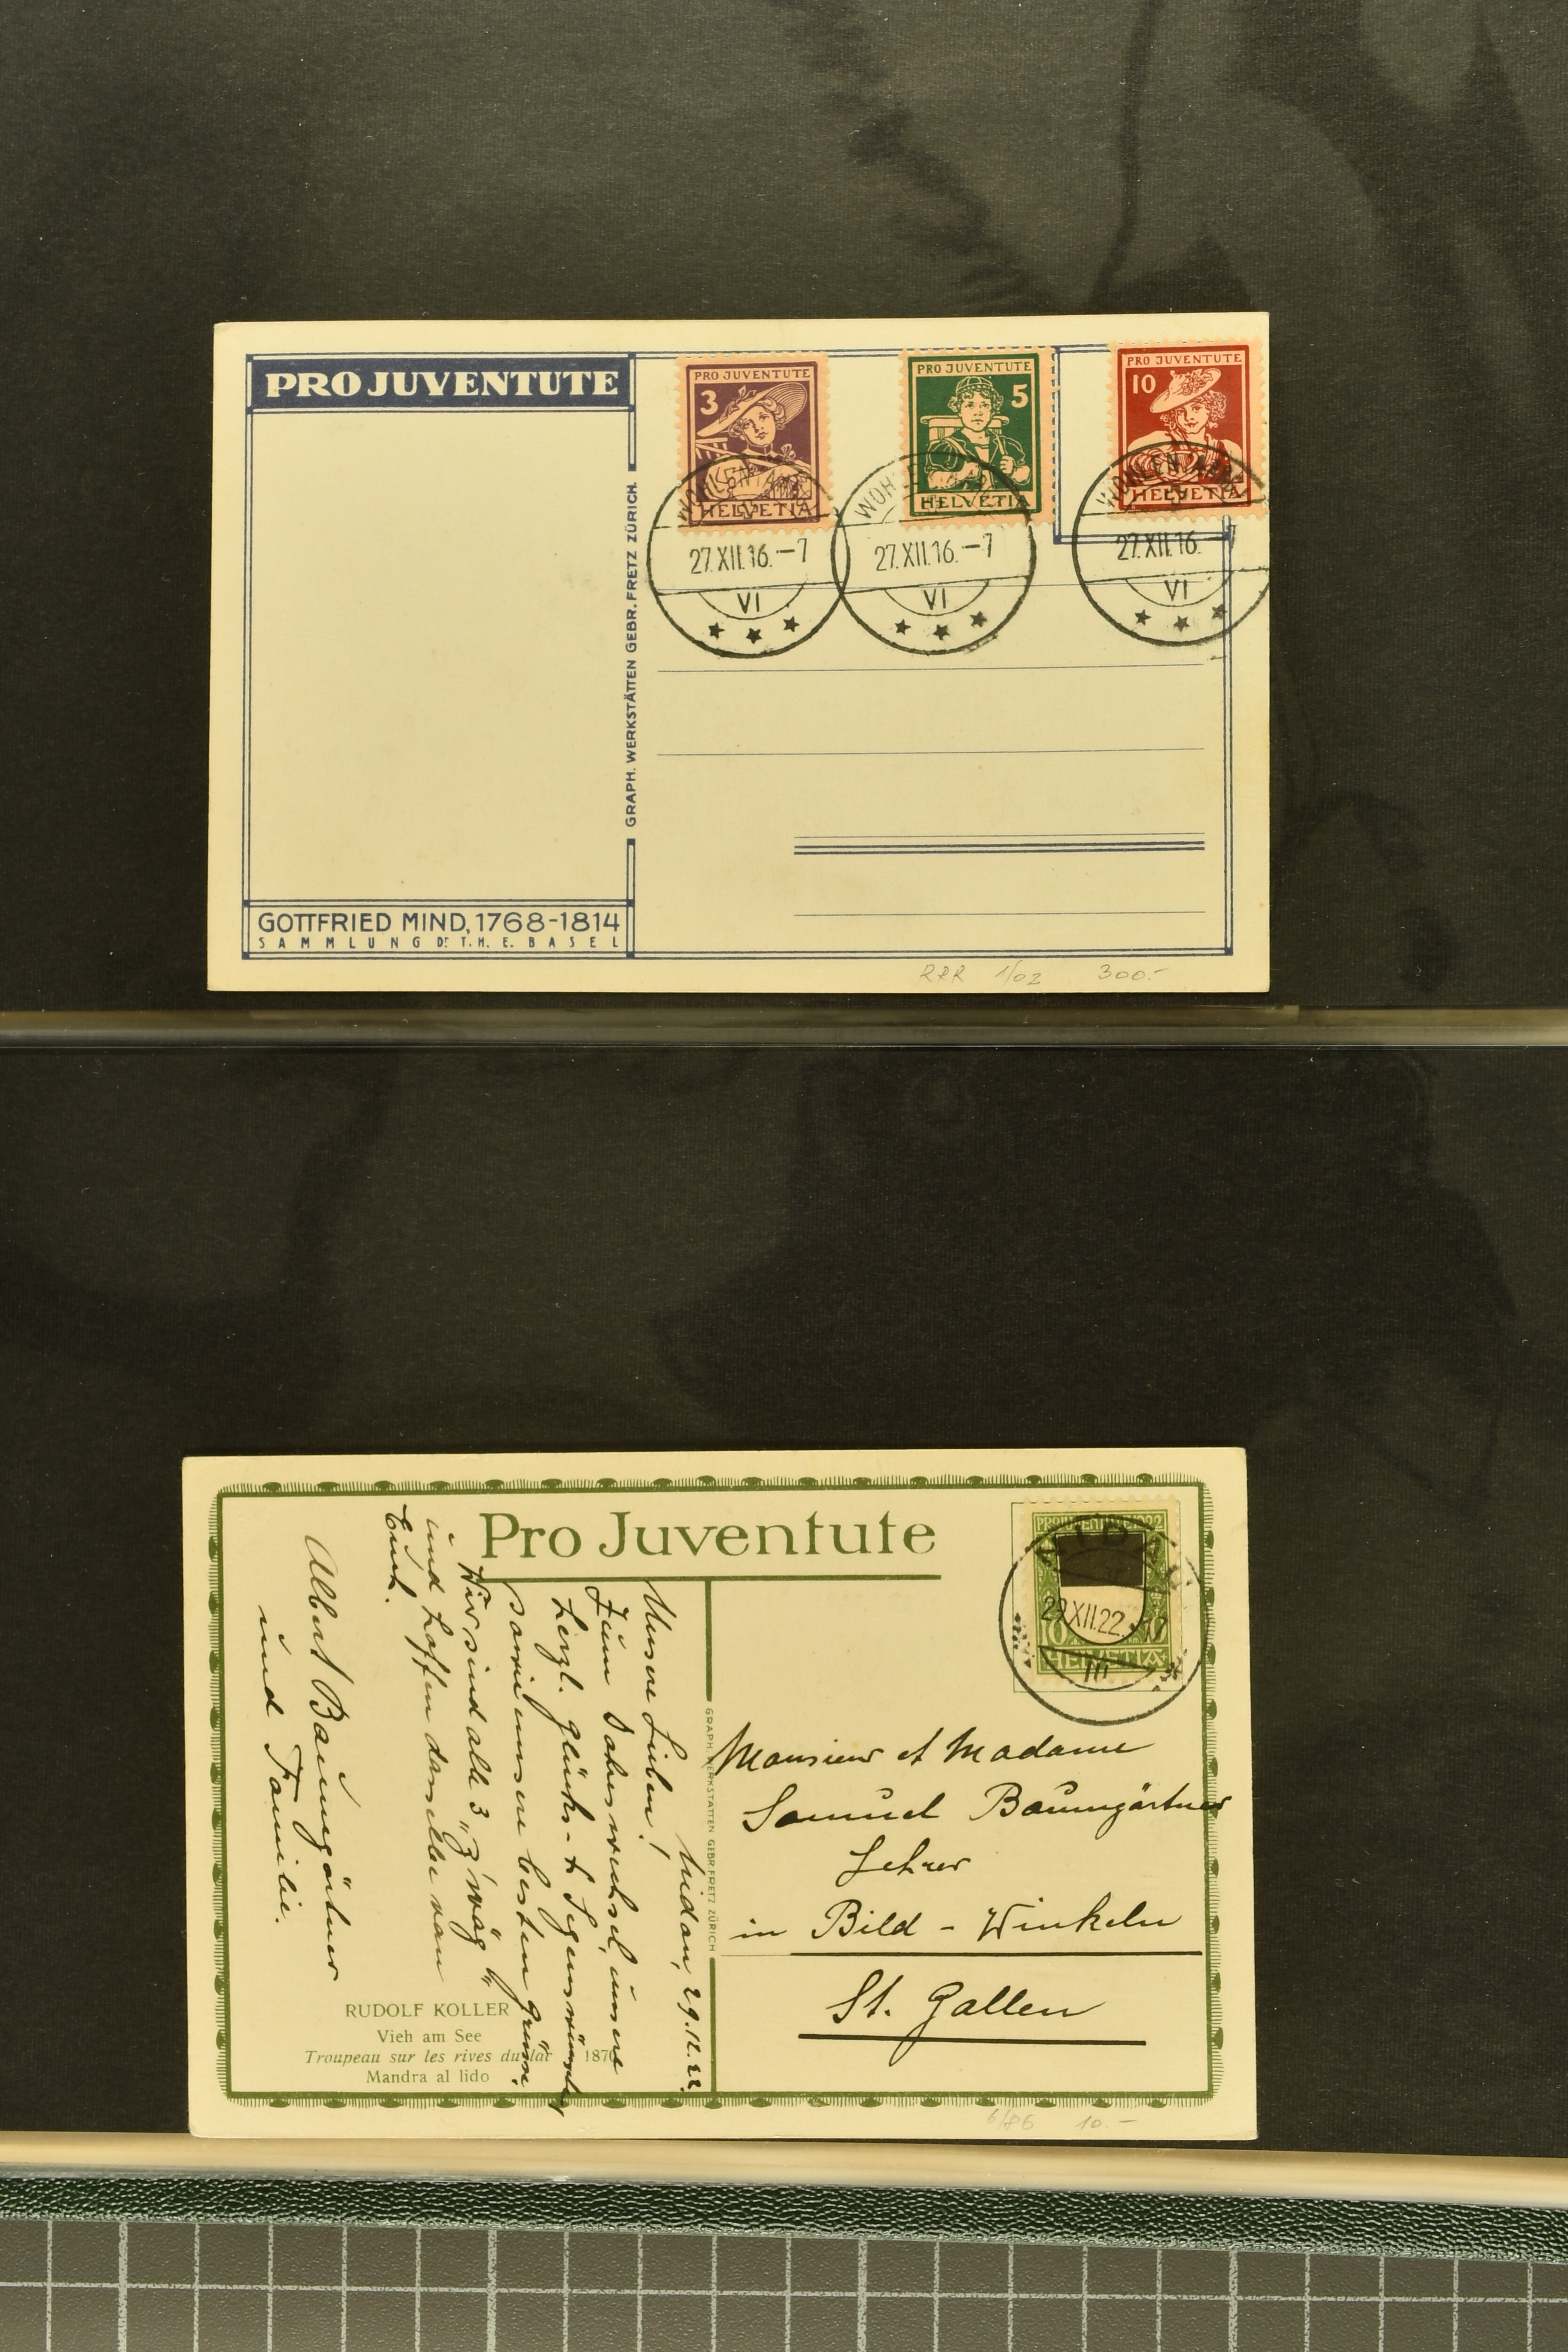 PRO JUVENTUTE
PRO JUVENTUTE
3
HELVETIA
PRO JUVENTUTE
5
HELVETIA
PRO JUVENTUTE
10
HELVETIA
WOHLEN
27.XII.16.–7
VI
WOHLEN
27.XII.16.–7
VI
WOHLEN
27.XII.16.–7
VI
GRAPH. WERKSTÄTTEN GEBR. FRETZ ZÜRICH.
GOTTFRIED MIND, 1768-1814
SAMMLUNG DR. T.H. E. BASEL
RRR 1/02 300.-
Pro Juventute
PRO JUVENTUTE 1922
10
HELVETIA
NIDAU
29.XII.22.
Nidau, 29.12.22.
Unsere Lieben!
Zum Jahreswechsel, unsere
herzl. Glücks- & Segenswünsche
sowie unsere besten Grüsse.
Wir sind alle 3 „z'wäg"
und hoffen dasselbe von
Euch.
Albert Baumgärtner
und Familie.
GRAPH. WERKSTÄTTEN GEBR. FRETZ ZÜRICH
Monsieur et Madame
Samuel Baumgärtner
Lehrer
in Bild - Winkeln
St. Gallen
RUDOLF KOLLER
Vieh am See
Troupeau sur les rives du lac 1870
Mandra al lido
6/86 10.-